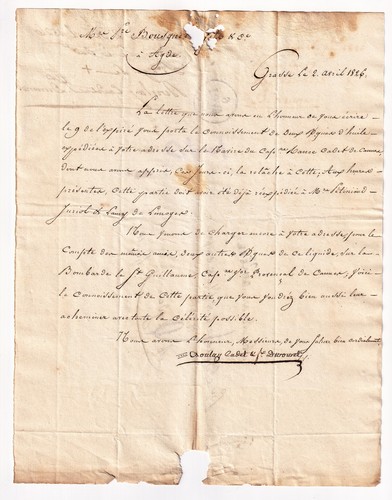 Mrs Pre Bousquet fils & Ce
à Agde
Grasse Le 2. avril 1826.
La lettre que nous avons eu l'honneur de vous écrire
le 9 de l'expiré vous porta le connoissement de deux Pques d'huile
expédiées à votre adresse sur le Navire du Capne Cadet de Cannes
dont nous avons appris, ces jours-ci, la relâche à Cette; aux heures
présentes, cette partie doit avoir été déjà réexpédiée à Mrs
& de Limoges.
Nous venons de charger encore à votre adresse, pour le
Compte des mêmes amis, deux autres Pques de ce liquide, sur la
Bombarde le St Guillaume Capne de Cannes, Voici
le connoissement de cette partie que vous voudrez bien aussi leur
acheminer avec toute la célérité possible.
Nous avons l'honneur, Messieurs, de vous saluer bien cordialement,
Cadet &